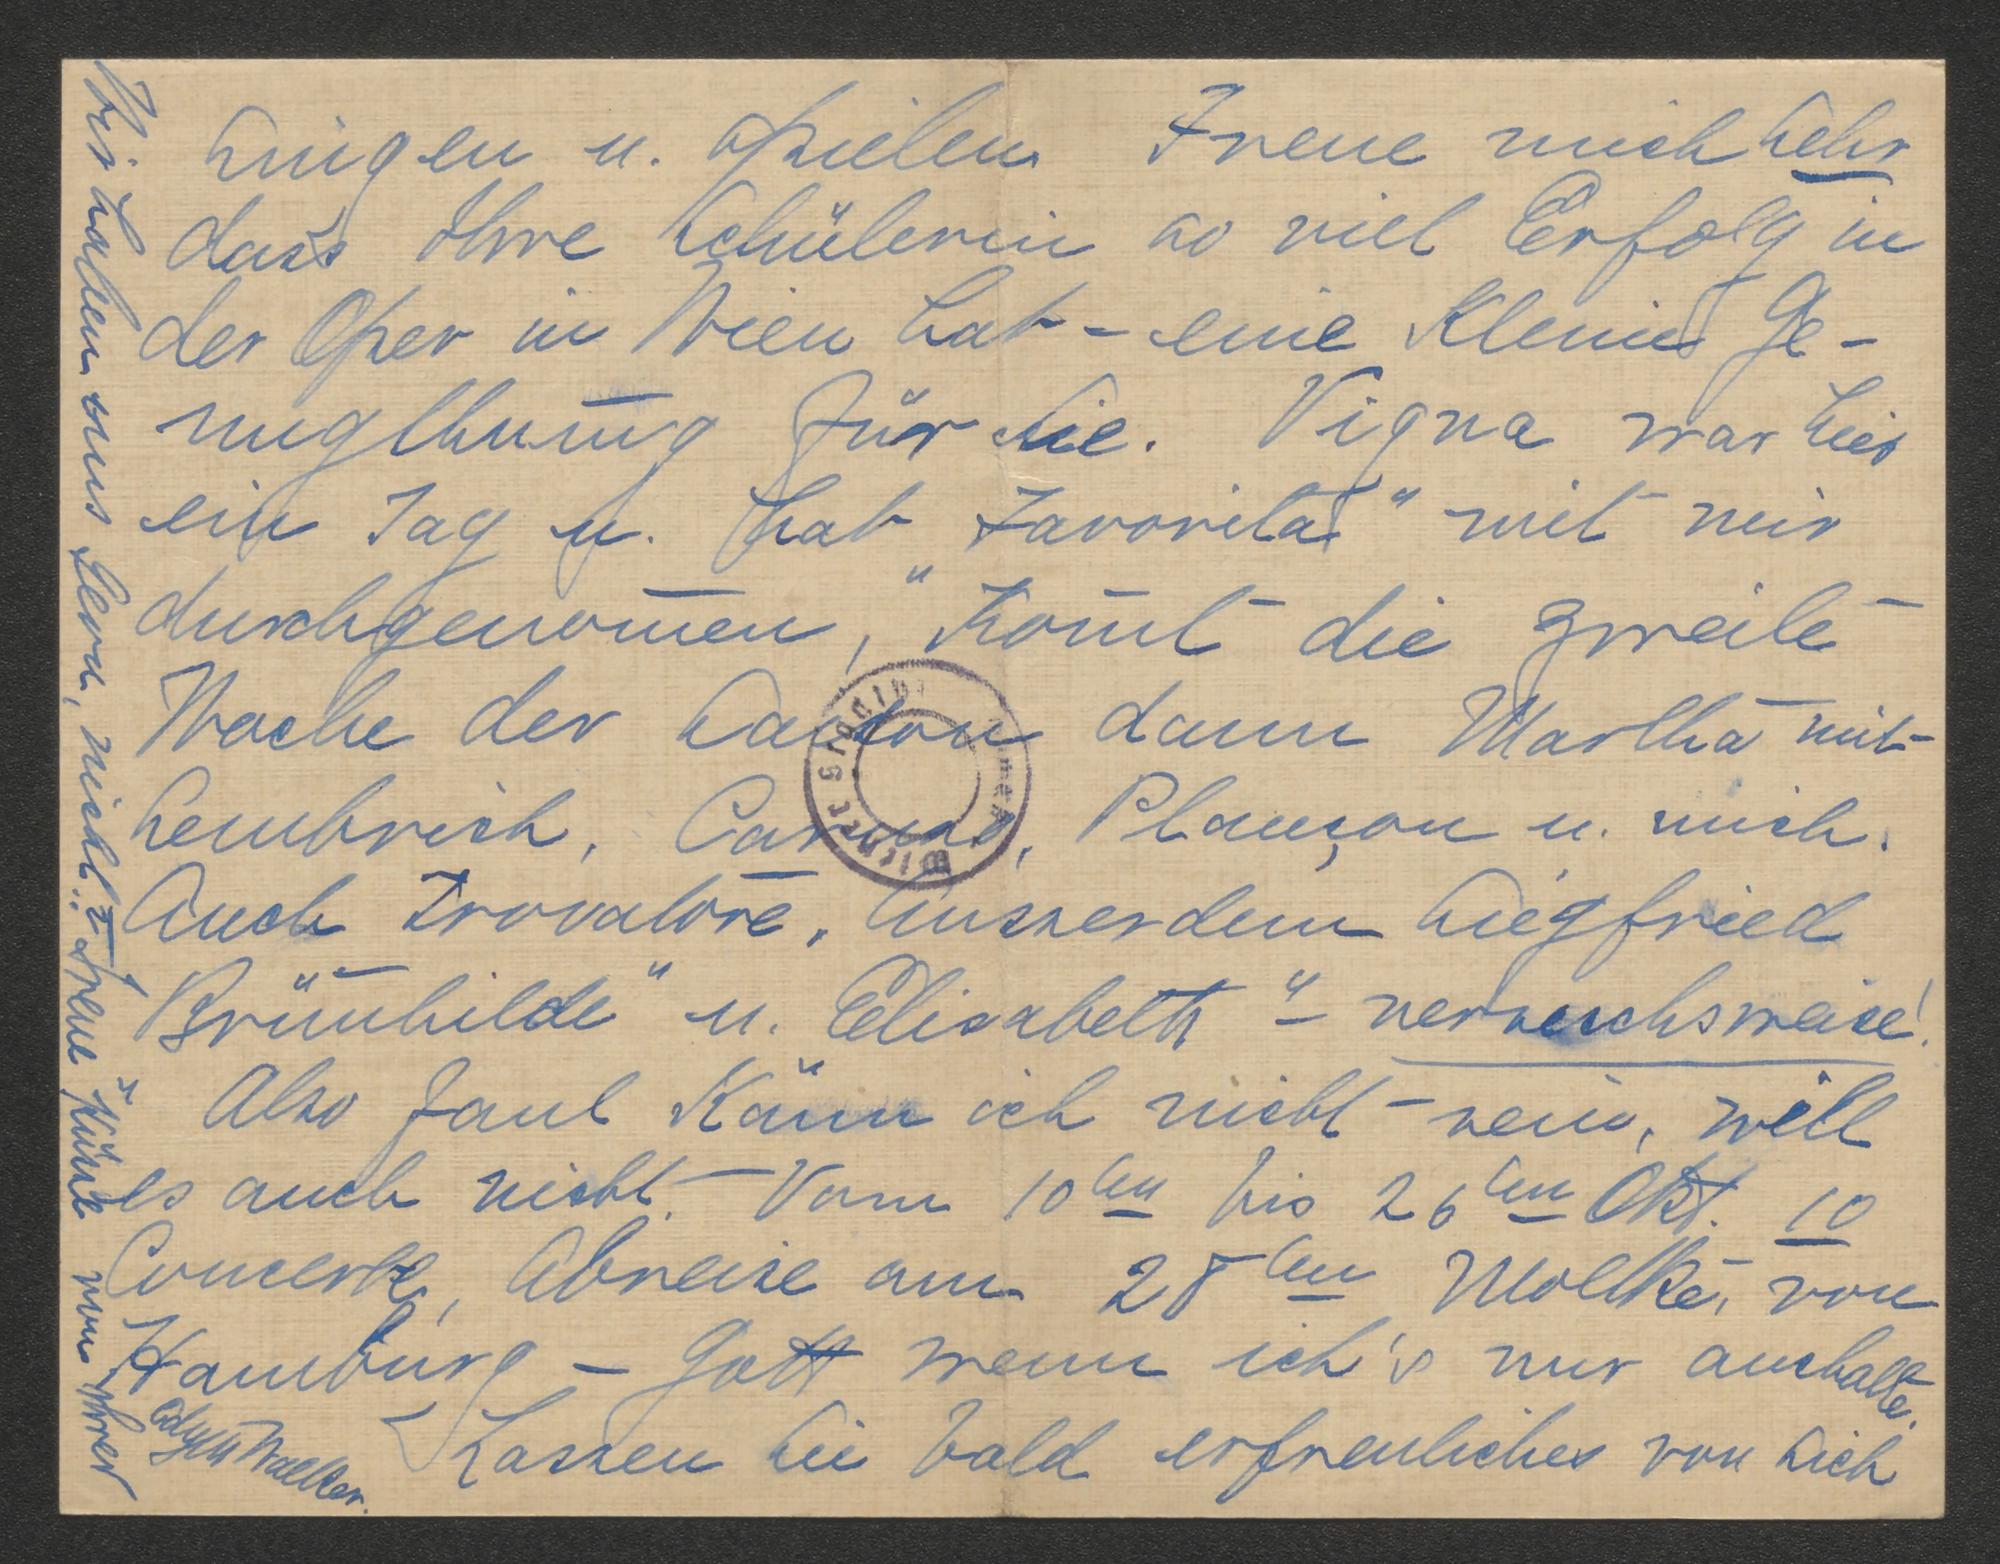 singen u. spielen. Freue mich sehr
dass Ihre Schülerin so viel Erfolg in
der Oper in Wien hat - eine kleine Ge-
nugthuung für Sie. Vigna war hier
ein Tag u. hat „Favorita" mit mir
durchgenom̄en, kom̄t die zweite
Woche der Saison dann Martha mit
Sembrich, Caruso, Plançon u. mich.
Auch Trovatore, ausserdem Siegfried
„Brün̄hilde" u. Elisabeth" - versuchsweise!
Also faul kan̄n ich nicht sein, will
es auch nicht. - Vom 10ten bis 26ten Okt. 10
Concerte, Abreise am 28ten Moltke, von
Hamburg - Gott wenn ich's nur aushalte.
Lassen Sie bald erfreuliches von sich
Wir haben uns gern, nicht? Treue Küsse von Ihrer
Edyth Walker.
Wiener Stadtbi